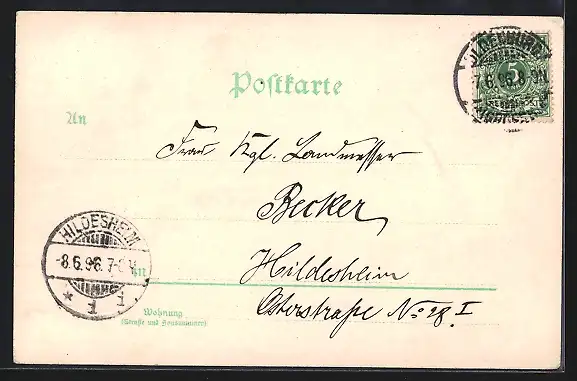 Postkarte
OLDENBURG
7.6.96.8-9N
5
An
Frau Kgl. Landmesser
Becker
HILDESHEIM
-8.6.96.7-8V
in
Hildesheim
* 1 i
Osterstraße No 28 I
Wohnung
(Straße und Hausnummer)